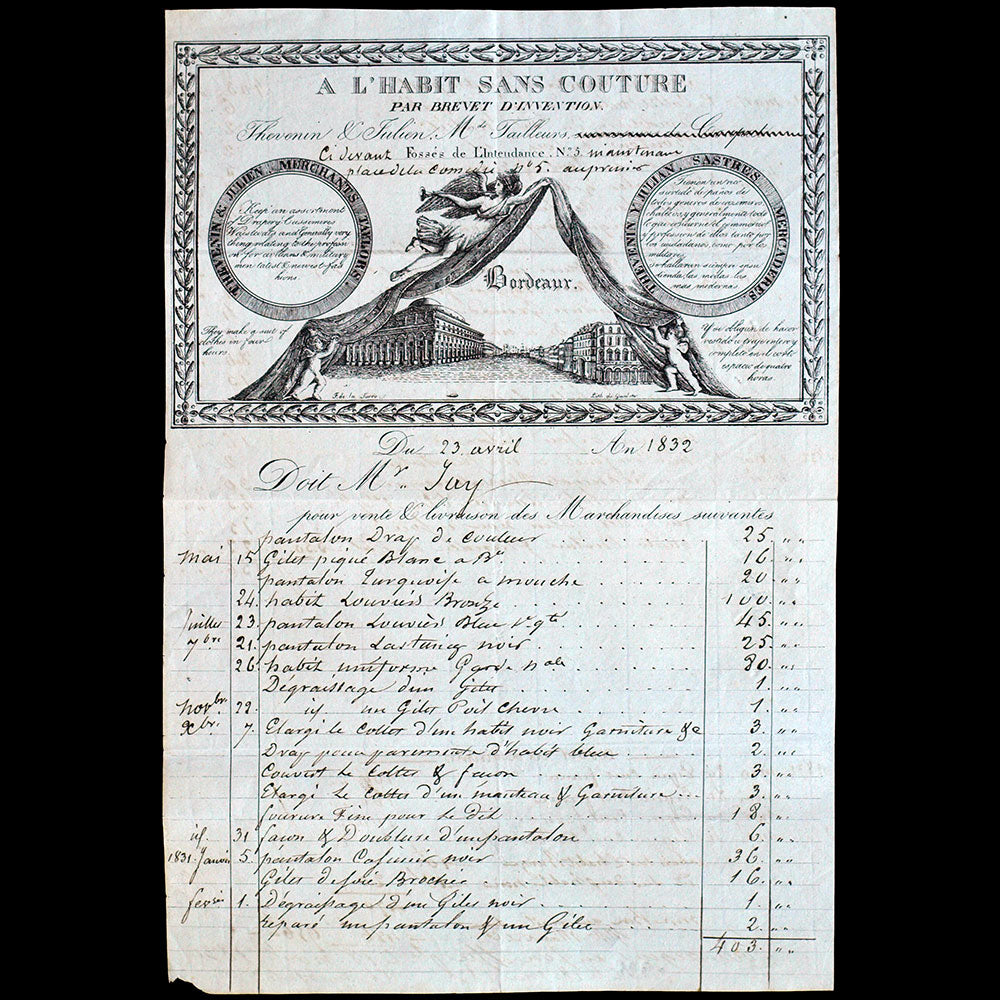 A L'HABIT SANS COUTURE
PAR BREVET D'INVENTION.
Thevenin & Julien, Mds Tailleurs,
Ci devant Fossés de L'Intendance, No 5. maintenant
place de la Comedie No 5. au premier
THEVENIN & JULIEN, MERCHANTS TAYLORS.
Keep an assortment
of Drapery Cassemires
Waistcoats and Generally very
theng relating to the professi
on for civilians & military
men latest & newest fas
hions
They make a suit of
clothes in four
hours.
Bordeaux.
THEVENIN Y JULIAN, SASTRES MERCADERES
Tienen un rico
surtido de paños de
todos generos de casemiros
chalecos, y generalmente todo
lo que concierne
a profesion de ellos tanto por
los ciudadanos, como por los
militares
se hallaran siempre en su
tienda, las modas las
mas modernas
Y se obligan de hacer
vestido o traje entero y
completo en el corto
espacio de quatro
horas.
Du 23 avril An 1832
Doit Mr. Jay
pour vente & livraison des Marchandises suivantes
pantalon Drap de couleur 25 " "
Mai 15 Gilet piqué Blanc a Br 16 " "
pantalon Turquoise a mouche 20 " "
24. habit Louviers Bronze 100 " "
Juillet 23 pantalon Louviers Bleu 1re qté 45 " "
7bre 21. pantalon Lasting noir 25 " "
26 habit uniforme Garde nale 80 " "
Dégraissage d'un Gilet 1. " "
Novbr. 22. id un Gilet Poil chevre 1. " "
Xbr. 7. Elargi le collet d'un habit noir Garniture &c 3. " "
Drap pour parements d'habit bleu 2. " "
Couvert le collet & façon 3. " "
Elargi le collet d'un manteau & Garniture 3. " "
fourure fine pour le dit 18. " "
id 31 façon & Doublure d'un pantalon 6. " "
1831. Janvier 5. pantalon Casimir noir 36. " "
Gilet de soie Brochée 16. " "
fevrier 1. Dégraissage d'un Gilet noir 1. " "
Réparé un pantalon & un Gilet 2. " "
403. " "